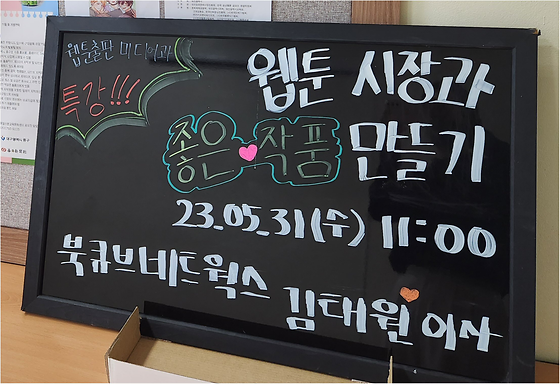 웹툰출판 미디어과
특강!!!
웹툰 시장과
좋은 작품 만들기
23.05.31(수) 11:00
북큐브네트웍스
김대원 이사